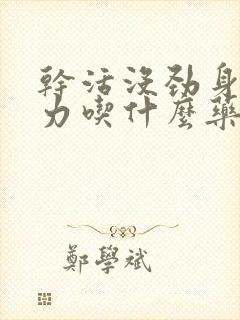 幹活沒勁身
力喫什麼藥
鄭學斌